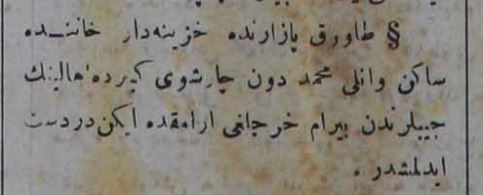 § طاورق پازارنده خزینه‌دار خاننده
ساکن وانلی محمد دون چارشوی کبرده اهالینك
جیبلرندن بیرام خرجلغی ارامقده ایکن دردست
ایدلمشدر .